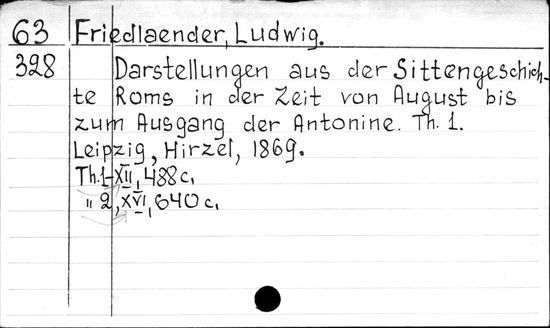 63 Friedlaender, Ludwig.
328 Darstellungen aus der Sittengeschich-
te Roms in der Zeit von August bis
zum Ausgang der Antonine. Th. 1.
Leipzig, Hirzel, 1869.
Th. 1-XII, 488 c.
" 2, XVI, 640 c.